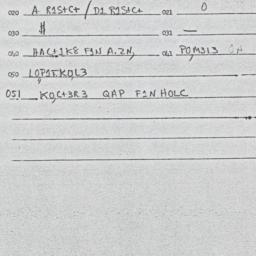 020 A R1S+C+ / D1 R1S+C+ 021 0
030 # 031 —
040 HAC+1K8 F1N A.ZN, 041 POM313
050 LOP1T.KOL3
051 KO,C+3R3 QAP F1N HOLC